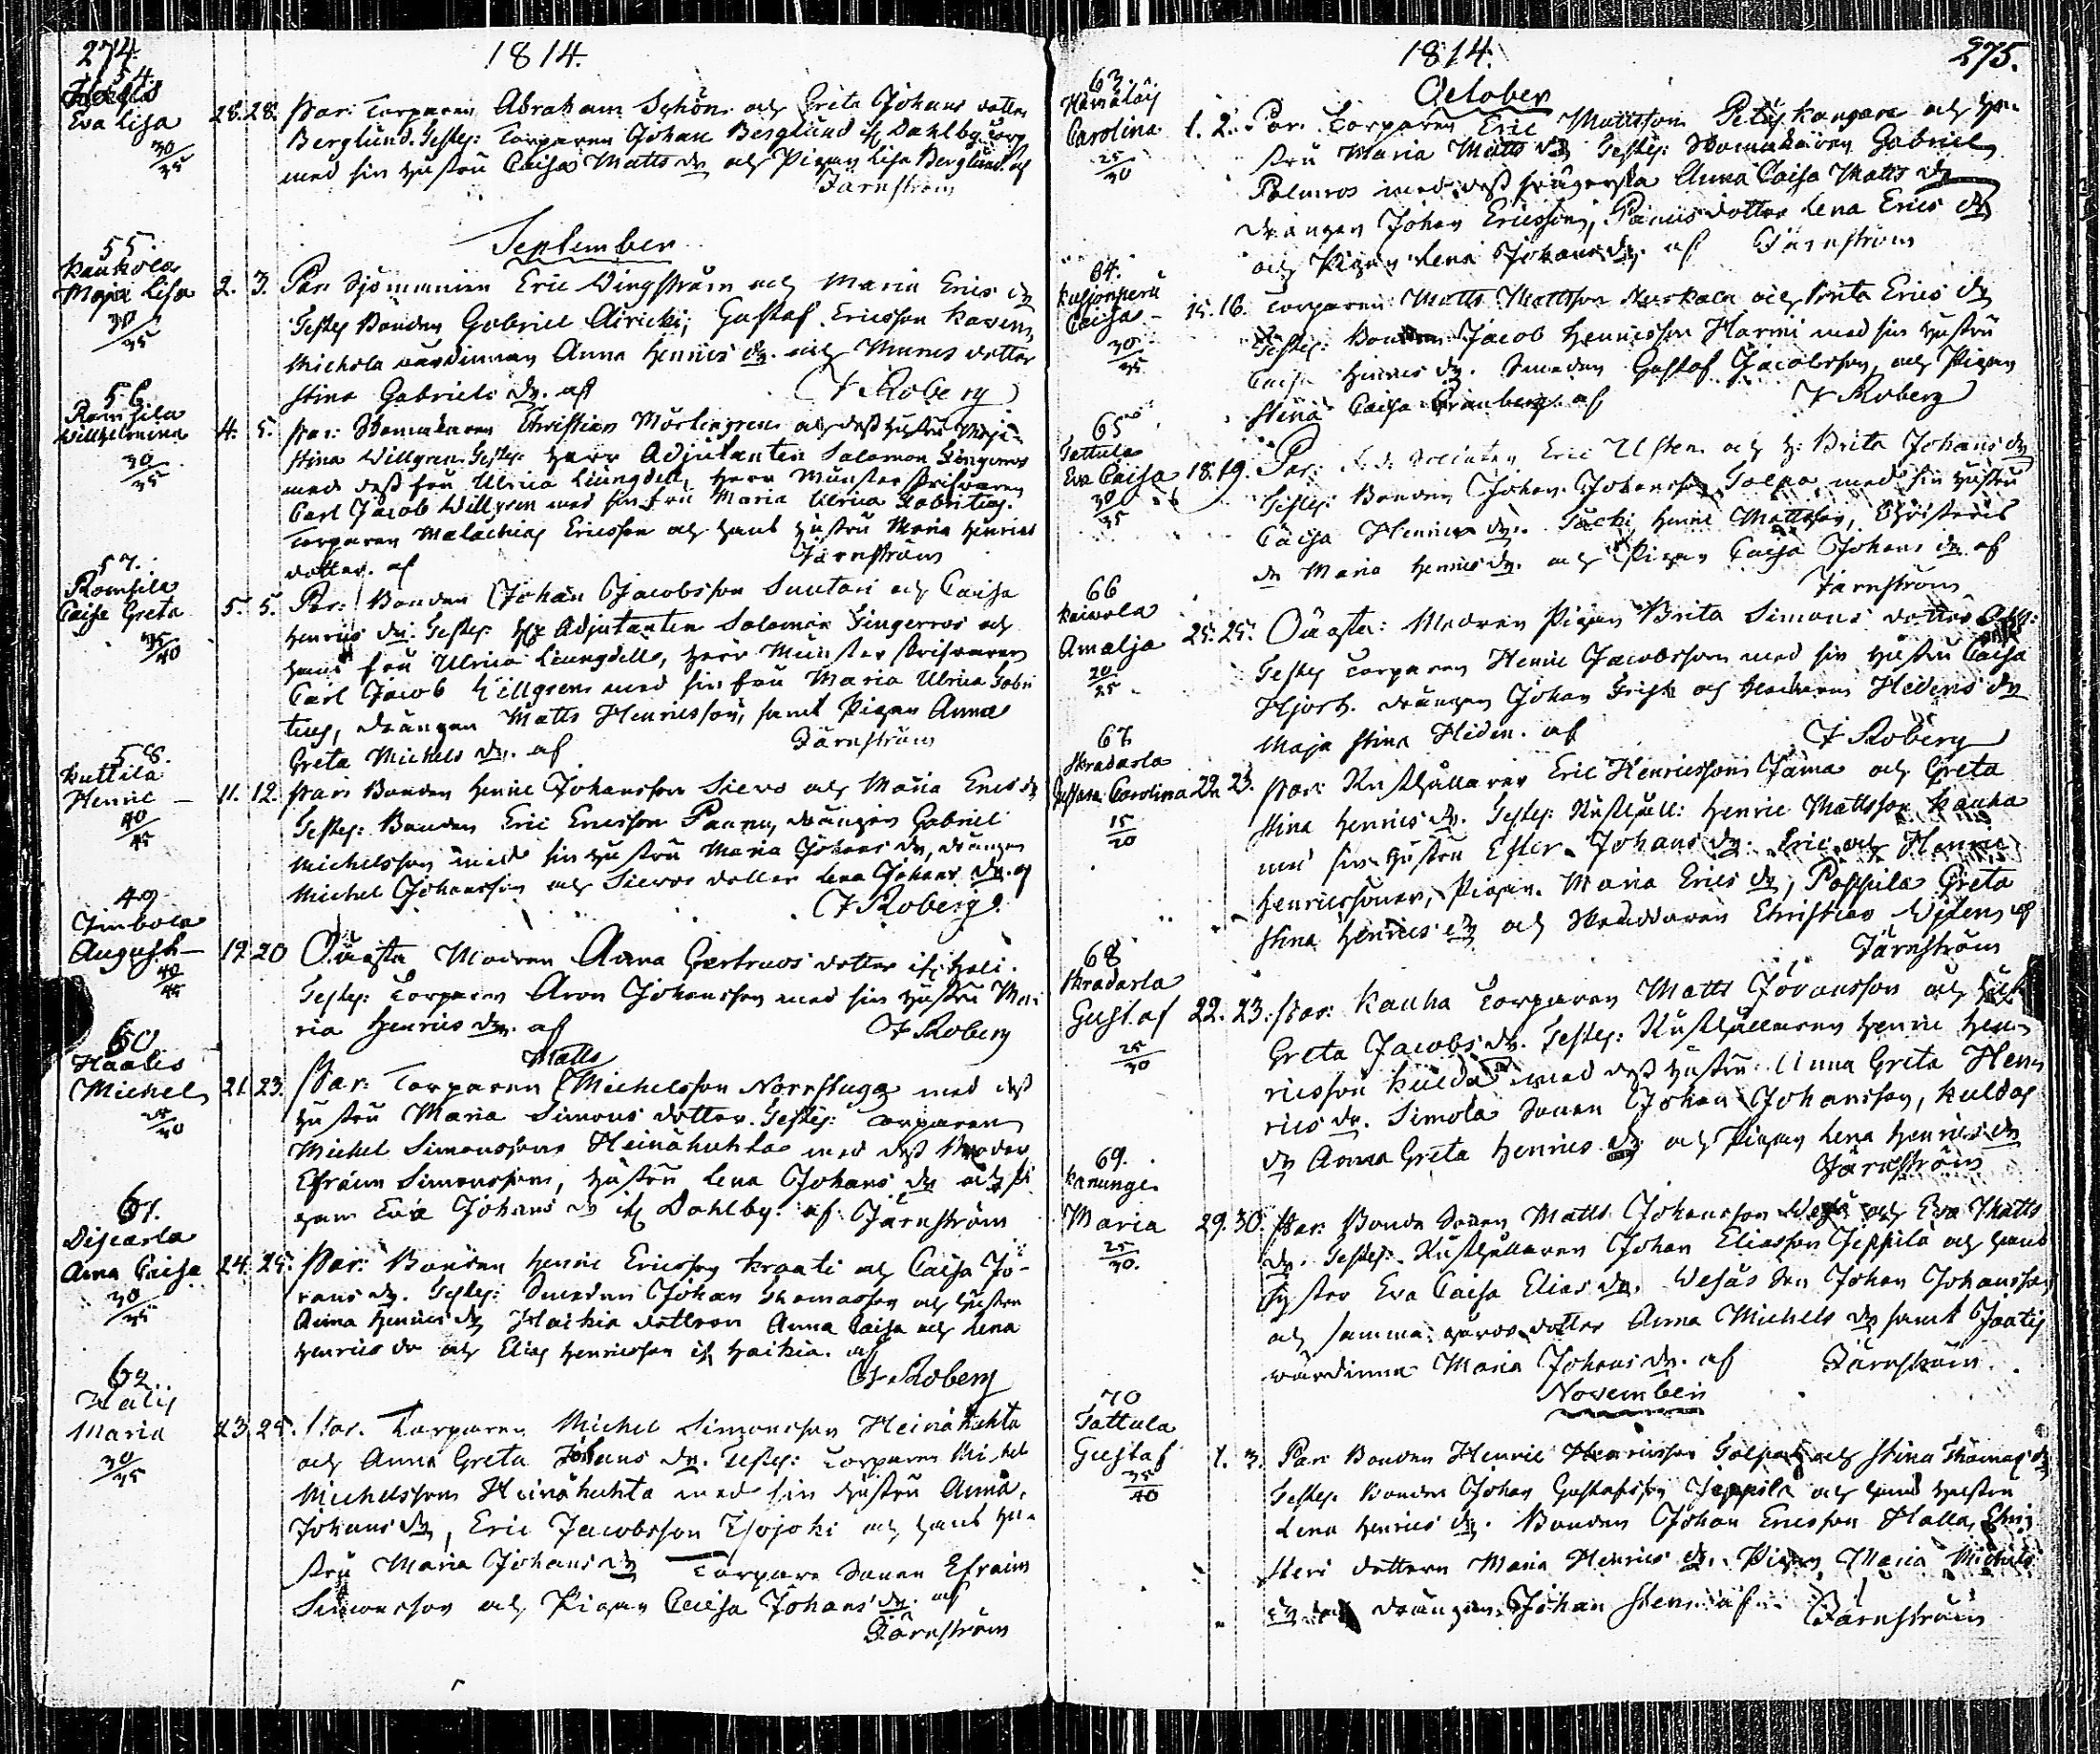 274.
1814.
54.
Eva Lisa 28. 28. Par: Torparen Abraham Schön och Greta Johans dotter
30/35
Berglund. Testes: Torparen Johan Berglund if Dahlby Torp
med sin hustru Caisa Matts dr och Pigan Lisa Berglund. af
Järnström
September
55.
Kaukola
Maja Lisa 2. 3. Par: Sjömannen Eric Wingström och Maria Erics dr
30/35
Testes Bonden Gabriel Airicki, Gustaf Ericsson
Michola värdinnan Anna Henrics dr. och dotter
Stina Gabriels dr. af F Roberg
56.
Romsila
Willhelmina 4. 5. Par: Skomakaren Christian Mörtengren och dess hustru Maja
30/35
Stina Willgren Testes: Herr Adjutanten Salomon Zingerroos
med dess fru Ulrica Liungdell, Herr Munsterskrifvaren
Carl Jacob Willgren med sin fru Maria Ulrica
Torparen Malachias Ericsson och hans hustru Maria Henrics
dotter. af Järnström
57.
Romsila
Caisa Greta 5. 5. Par: Bonden Johan Jacobsson Suutari och Caisa
35/40
Henrics dr. Testes: Hr Adjutanten Salomon Zingerroos och
hans fru Ulrica Liungdell, Herr Munsterskrifvaren
Carl Jacob Willgren med sin fru Maria Ulrica
drängen Matts Henricsson, samt Pigan Anna
Greta Michels dr. af Järnström
58.
Kuttila
Henric – 11. 12. Par: Bonden Henric Johansson Sievo och Maria Erics dr
40/45
Testes: Bonden Eric Ericsson Paunu, drängen Gabriel
Michelsson med sin hustru Maria Johans dr, drängen
Michel Johansson och Sievos dotter Lena Johans dr. af
F Roberg
49
Jimbola
August – 19. 20 Oäkta Modren Anna Gertruds dotter
40/45
Testes: Torparen Aron Johansson med sin hustru Ma-
ria Henrics dr. af F Roberg
60
Haalis
Matts
Michel 21. 23. Par: Torparen Michelsson Norrstuga med dess
hustru Maria Simons dotter. Testes: Torparen
Michel Simonsson Heinähuhta med dess Broder
Efraim Simonsson, hustru Lena Johans dr och Pi
gan Eva Johans dr if Dahlby. af Järnström
61.
Anna Caisa 24. 25. Par: Bonden Henric Ericsson Kraati och Caisa Jö-
30/35
rans dr. Testes: Smeden Johan Thomasson och hustru
Anna Henrics dr Haikia dottren Anna Caisa och Lena
Henrics dr och Elias Henricsson if Haikia. af
F. Roberg
62.
Maria 23. 25. Par. Torparen Michel Simonsson Heinähuhta
30/35
och Anna Greta Johans dr. Testes: Torparen Michel
Michelsson Heinähuhta med sin hustru Anna
Johans dr, Eric Jacobsson Isojoki och hans hu-
stru Maria Johans dr Torpare Sonen Efraim
Simonsson och Pigan Caisa Johans dr. af
Järnström
1814. 275.
October
63.
Carolina 1. 2. Par: Torparen Eric Mattsson Kangare och hu-
25/30
stru Maria Matts dr Testes: Skomakaren Gabriel
Palmros med dess Anna Caisa Matts dr
drängen Johan Ericsson, dotter Lena Erics dr
och Pigan Lena Johans dr. af Järnström
64.
Caisa – 15. 16. Torparen Matts Mattsson och Brita Erics dr
30/35
Testes: Bonden Jacob Henricsson Harmi med sin hustru
Caisa Henrics dr. Smeden Gustaf Jacobsson, och Pigan
Stina Caisa Granberg. af F Roberg
65
Tattula
Eva Caisa 18. 19. Par: Soldaten Eric Ulsten och h: Brita Johans dr
30/35
Testes: Bonden Johan Johansson Tolpa med sin hustru
Caisa Henrics dr. Henric Mattsson,
dr Maria Henrics dr. och Pigan Caisa Johans dr af
Järnström
66
Amalja 25. 25. Oäkta: Modren Pigan Brita Simons dotter
20/25
Testes Torparen Henric Jacobsson med sin hustru Caisa
Hjort. drängen Johan Frisk och Hedens dr
Maja Stina Heden. af F Roberg
67.
Skradarla
Carolina 22. 23. Par: Rusthållaren Eric Henricsson Jäma och Greta
15/20
Stina Henrics dr. Testes: Rusthåll: Henric Mattsson Kauha
med sin hustru Ester Johans dr. Eric och Henric
Henricssöner, Pigan Maria Erics dr, Poppila Greta
Stina Henrics dr och Skräddaren Christian af
Järnström
68
Skradarla
Gustaf 22. 23. Par: Kauha Torparen Matts Jöransson och
25/30
Greta Jacobs dr. Testes: Rusthållaren Henric Hen-
ricsson Kulda med dess hustru Anna Greta Hen
rics dr. Simola Sonen Johan Johansson, Kuldas
dr Anna Greta Henrics dr och Pigan Lena Henrics dr
Järnström
69.
Kanunge
Maria 29. 30. Par: Bonde Sonen Matts Johansson och Eva Matts
25/30.
dr. Testes: Rusthållaren Johan Eliasson Jeppila och hans
syster Eva Caisa Elias dr. Wesas Son Johan Johansson
och samma gårds dotter Anna Michels dr samt Jaatis
wärdinna Maria Johans dr. af Järnström.
November
70
Tattula
Gustaf 1. 3. Par: Bonden Henric Henricsson Tolpa och Stina Thomas dr
35/40
Testes. Bonden Johan Gustafsson Jeppila och hans hustru
Lena Henrics dr. Bonden Johan Ericsson Halla,
dottern Maria Henrics dr. Pigan Maria Michels
dr och drängen Johan Sten af Järnström